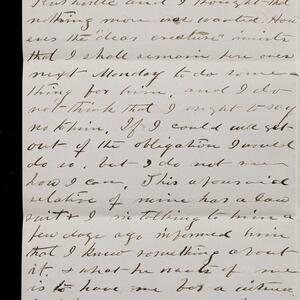 and I thought that
nothing more was wanted. How
ever the "dear creature" insists
that I shall remain here over
next Monday to do some-
thing for him, and I do
not think that I ought to say
no to him. If I could well get
out of the obligation I would
do so. but I do not see
how I can. This aforesaid
relative of mine has a law
suit & I in talking to him a
few days ago informed him
that I knew something about
it. & what he wants of me
is to have me for a witness